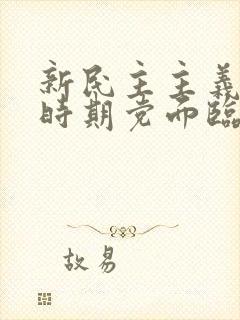 新民主主義
時期党面臨
故易